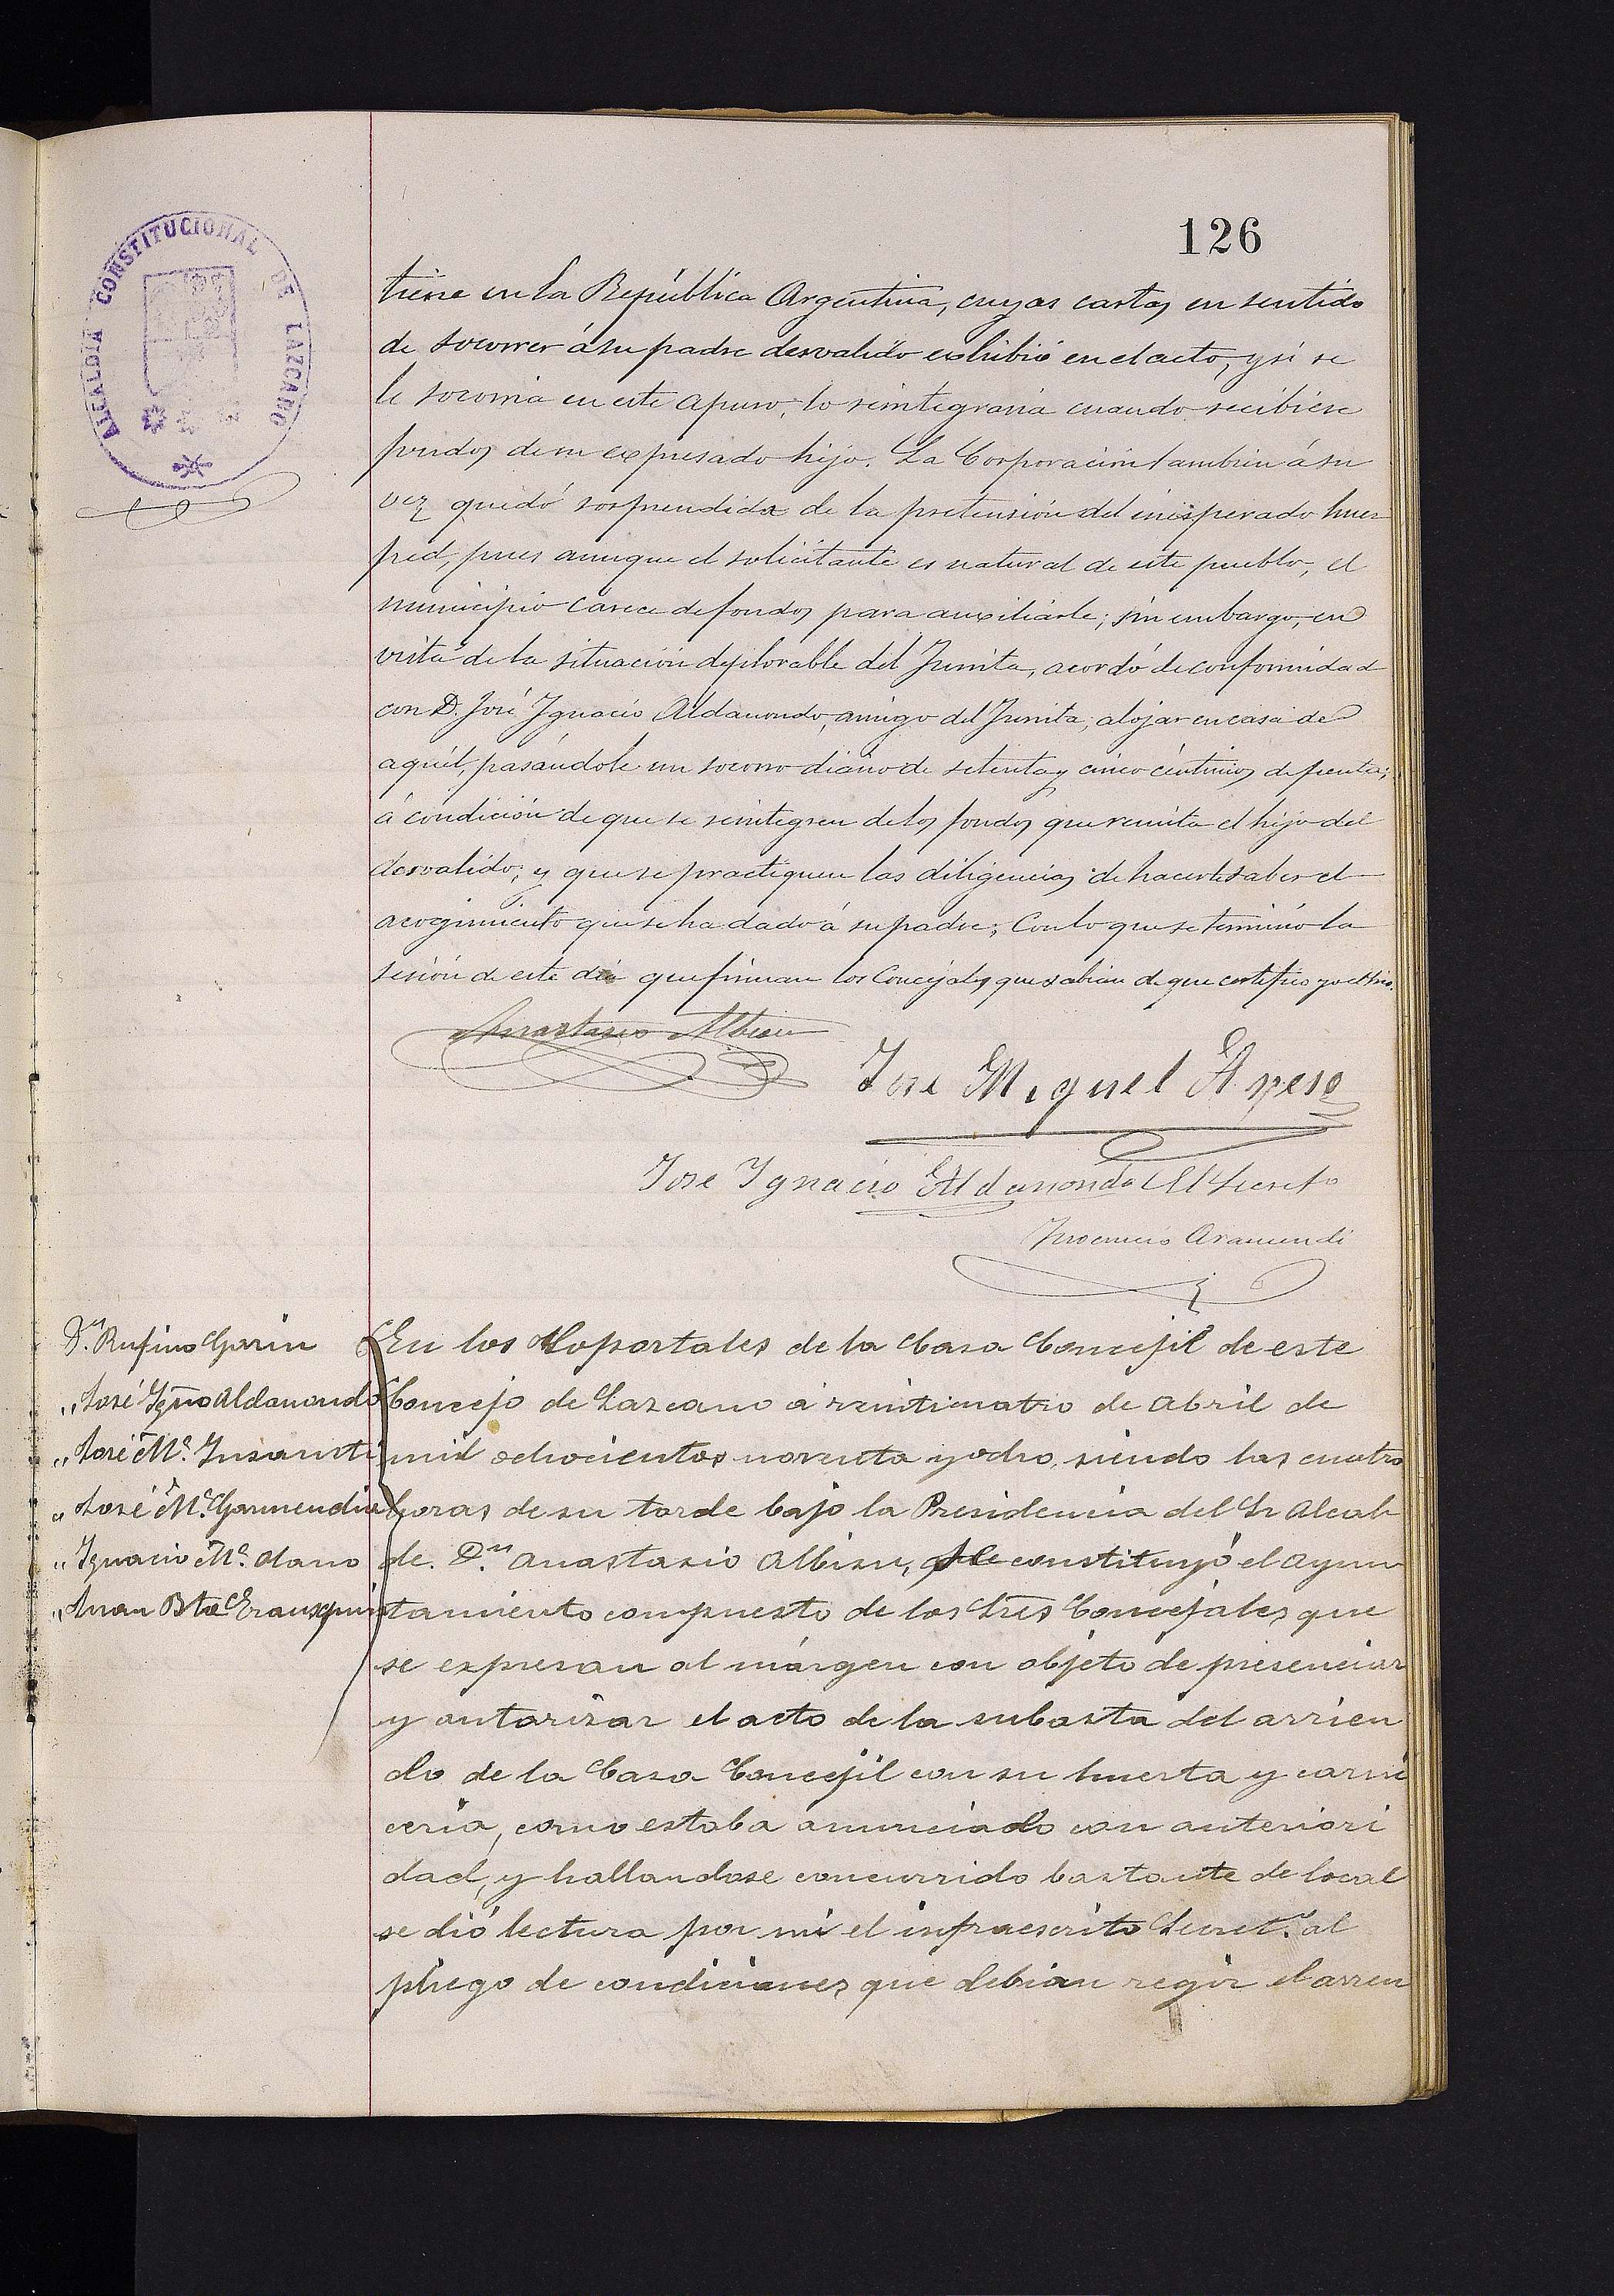 126
ALCALDÍA CONSTITUCIONAL DE LAZCANO
tiene en la República Argentina, cuyas cartas en sentido
de socorrer á su padre desvalido exhibió en el acto, y si se
le socorria en este apuro, lo reintegraria cuando recibiese
fondos de su expresado hijo. La Corporación tambien á su
vez quedó sorprendida de la pretensión del inesperado hues
ped, pues aunque el solicitante es natural de este pueblo, el
municipio carece de fondos para auxiliarle; sin embargo, en
vista de la situación deplorable del Jumita, acordó de conformidad
con D. José Ignacio Aldanondo, amigo del Jumita, alojar en casa de
aquél, pasándole un socorro diario de setenta y cinco céntimos de peseta;
á condición de que se reintegren de los fondos que remita el hijo del
desvalido; y que se practiquen las diligencias de hacerle saber el
acogimiento que se ha dado á su padre; Con lo que se terminó la
sesión de este dia que firman los Concejales que sabian de que certifico yo el Srio.
Anastasio Albisu
Jose Miguel Apeso
Jose Ignacio Aldanondo El Secreto
Inocencio Aramendi
D.n Rufino Garin
„ José Ygno Aldanondo
„ José M.ª Insausti
„ José M.ª Garmendia
„ Ignacio M.ª Olano
„ Juan Bta Erausquin
En los Soportales de la Casa Concejil de este
Concejo de Lazcano á veinticuatro de Abril de
mil ochocientos noventa y ocho, siendo las cuatro
horas de su tarde bajo la Presidencia del Sr Alcal
de. D.n Anastasio Albisu, se constituyó el Ayun
tamiento compuesto de los Sres Concejales que
se expresan al márgen con objeto de presenciar
y autorizar el acto de la subasta del arrien
do de la Casa Concejil con su huerta y carni
ceria, como estaba anunciado con anteriori
dad, y hallandose concurrido bastante de local
se dió lectura por mí el infraescrito Secret.º al
pliego de condiciones que debian regir el arren